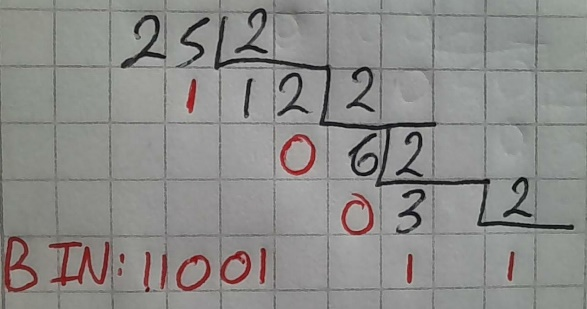 25 2
1 12 2
0 6 2
0 3 2
BIN: 11001 1 1